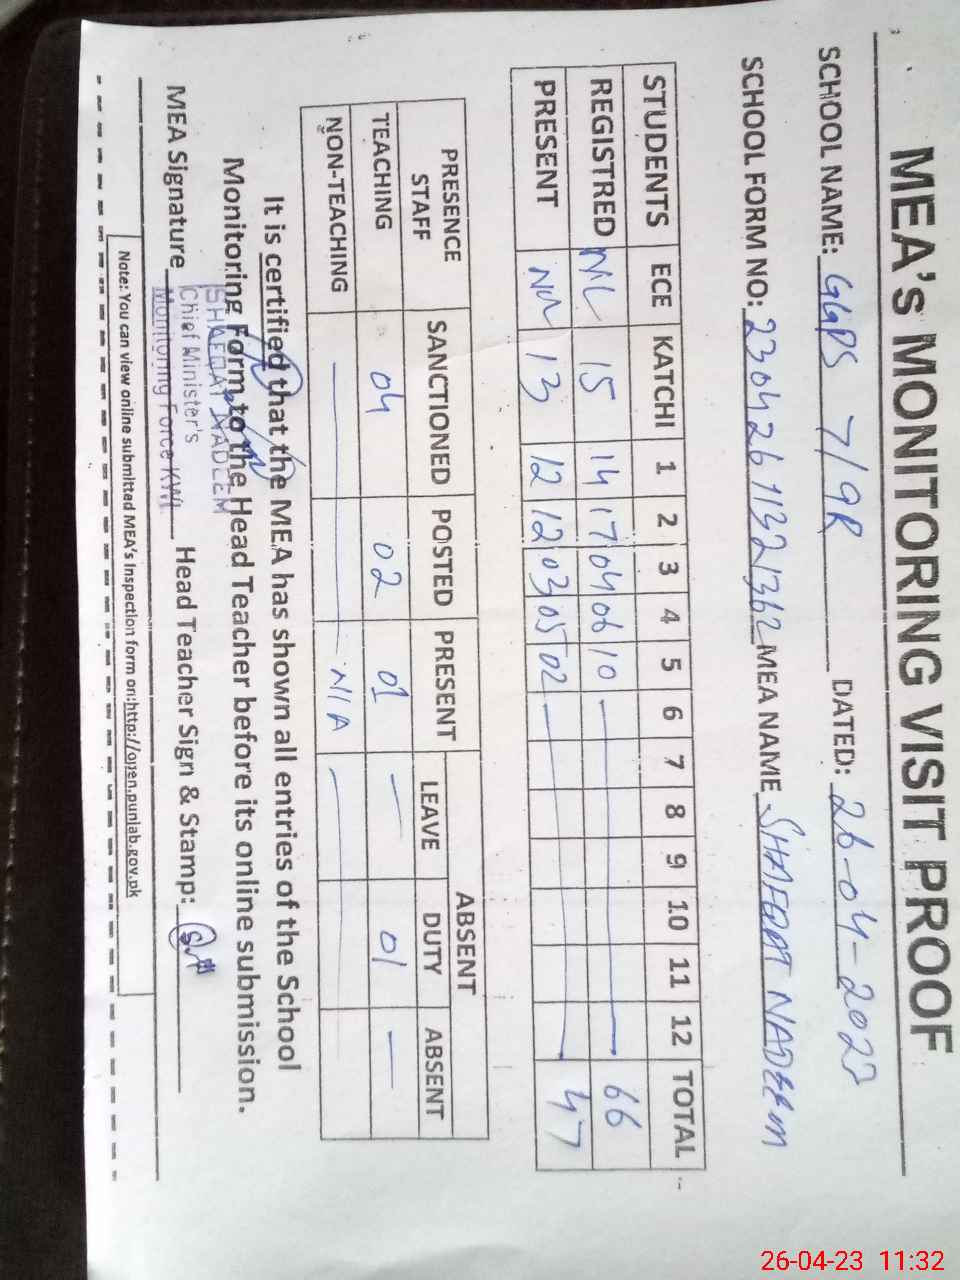 MEA's MONITORING VISIT PROOF
SCHOOL NAME: GGPS 7/9R DATED: 26-04-2023
SCHOOL FORM NO: 230426113221362 MEA NAME SHAFQAT NADEEM
STUDENTS ECE KATCHI 1 2 3 4 5 6 7 8 9 10 11 12 TOTAL
REGISTRED NIL 15 14 17 04 06 10 66
PRESENT NIL 13 12 12 03 05 02 47
PRESENCE STAFF SANCTIONED POSTED PRESENT ABSENT
LEAVE DUTY ABSENT
TEACHING 04 02 01 — 01 —
NON-TEACHING — N/A —
It is certified that the MEA has shown all entries of the School
Monitoring Form to the Head Teacher before its online submission.
SHAFQAT NADEEM
Chief Minister's
Monitoring Force KWL
MEA Signature Head Teacher Sign & Stamp:
Note: You can view online submitted MEA's Inspection form on:http://open.punjab.gov.pk
26-04-23 11:32